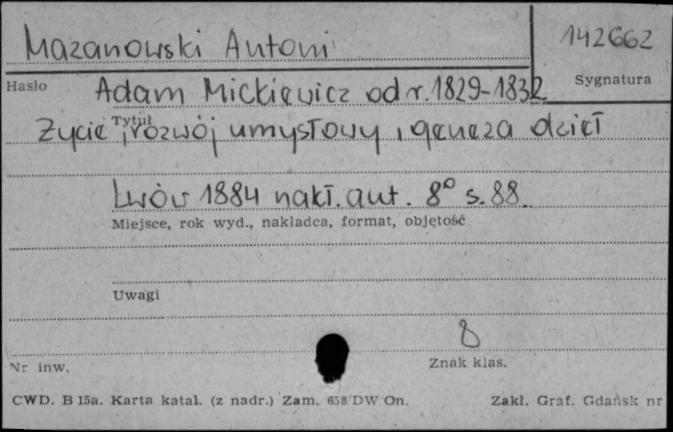 Mazanowski Antoni
142662
Hasło
Sygnatura
Adam Mickiewicz od r. 1829-1832
Tytuł
Życie, rozwój umysłowy i geneza dzieł
Lwów 1884 nakł. aut. 8° s. 88.
Miejsce, rok wyd., nakładca, format, objętość
Uwagi
8
Nr inw.
Znak klas.
CWD. B 15a. Karta katal. (z nadr.) Zam. 658 DW On.
Zakł. Graf. Gdańsk nr